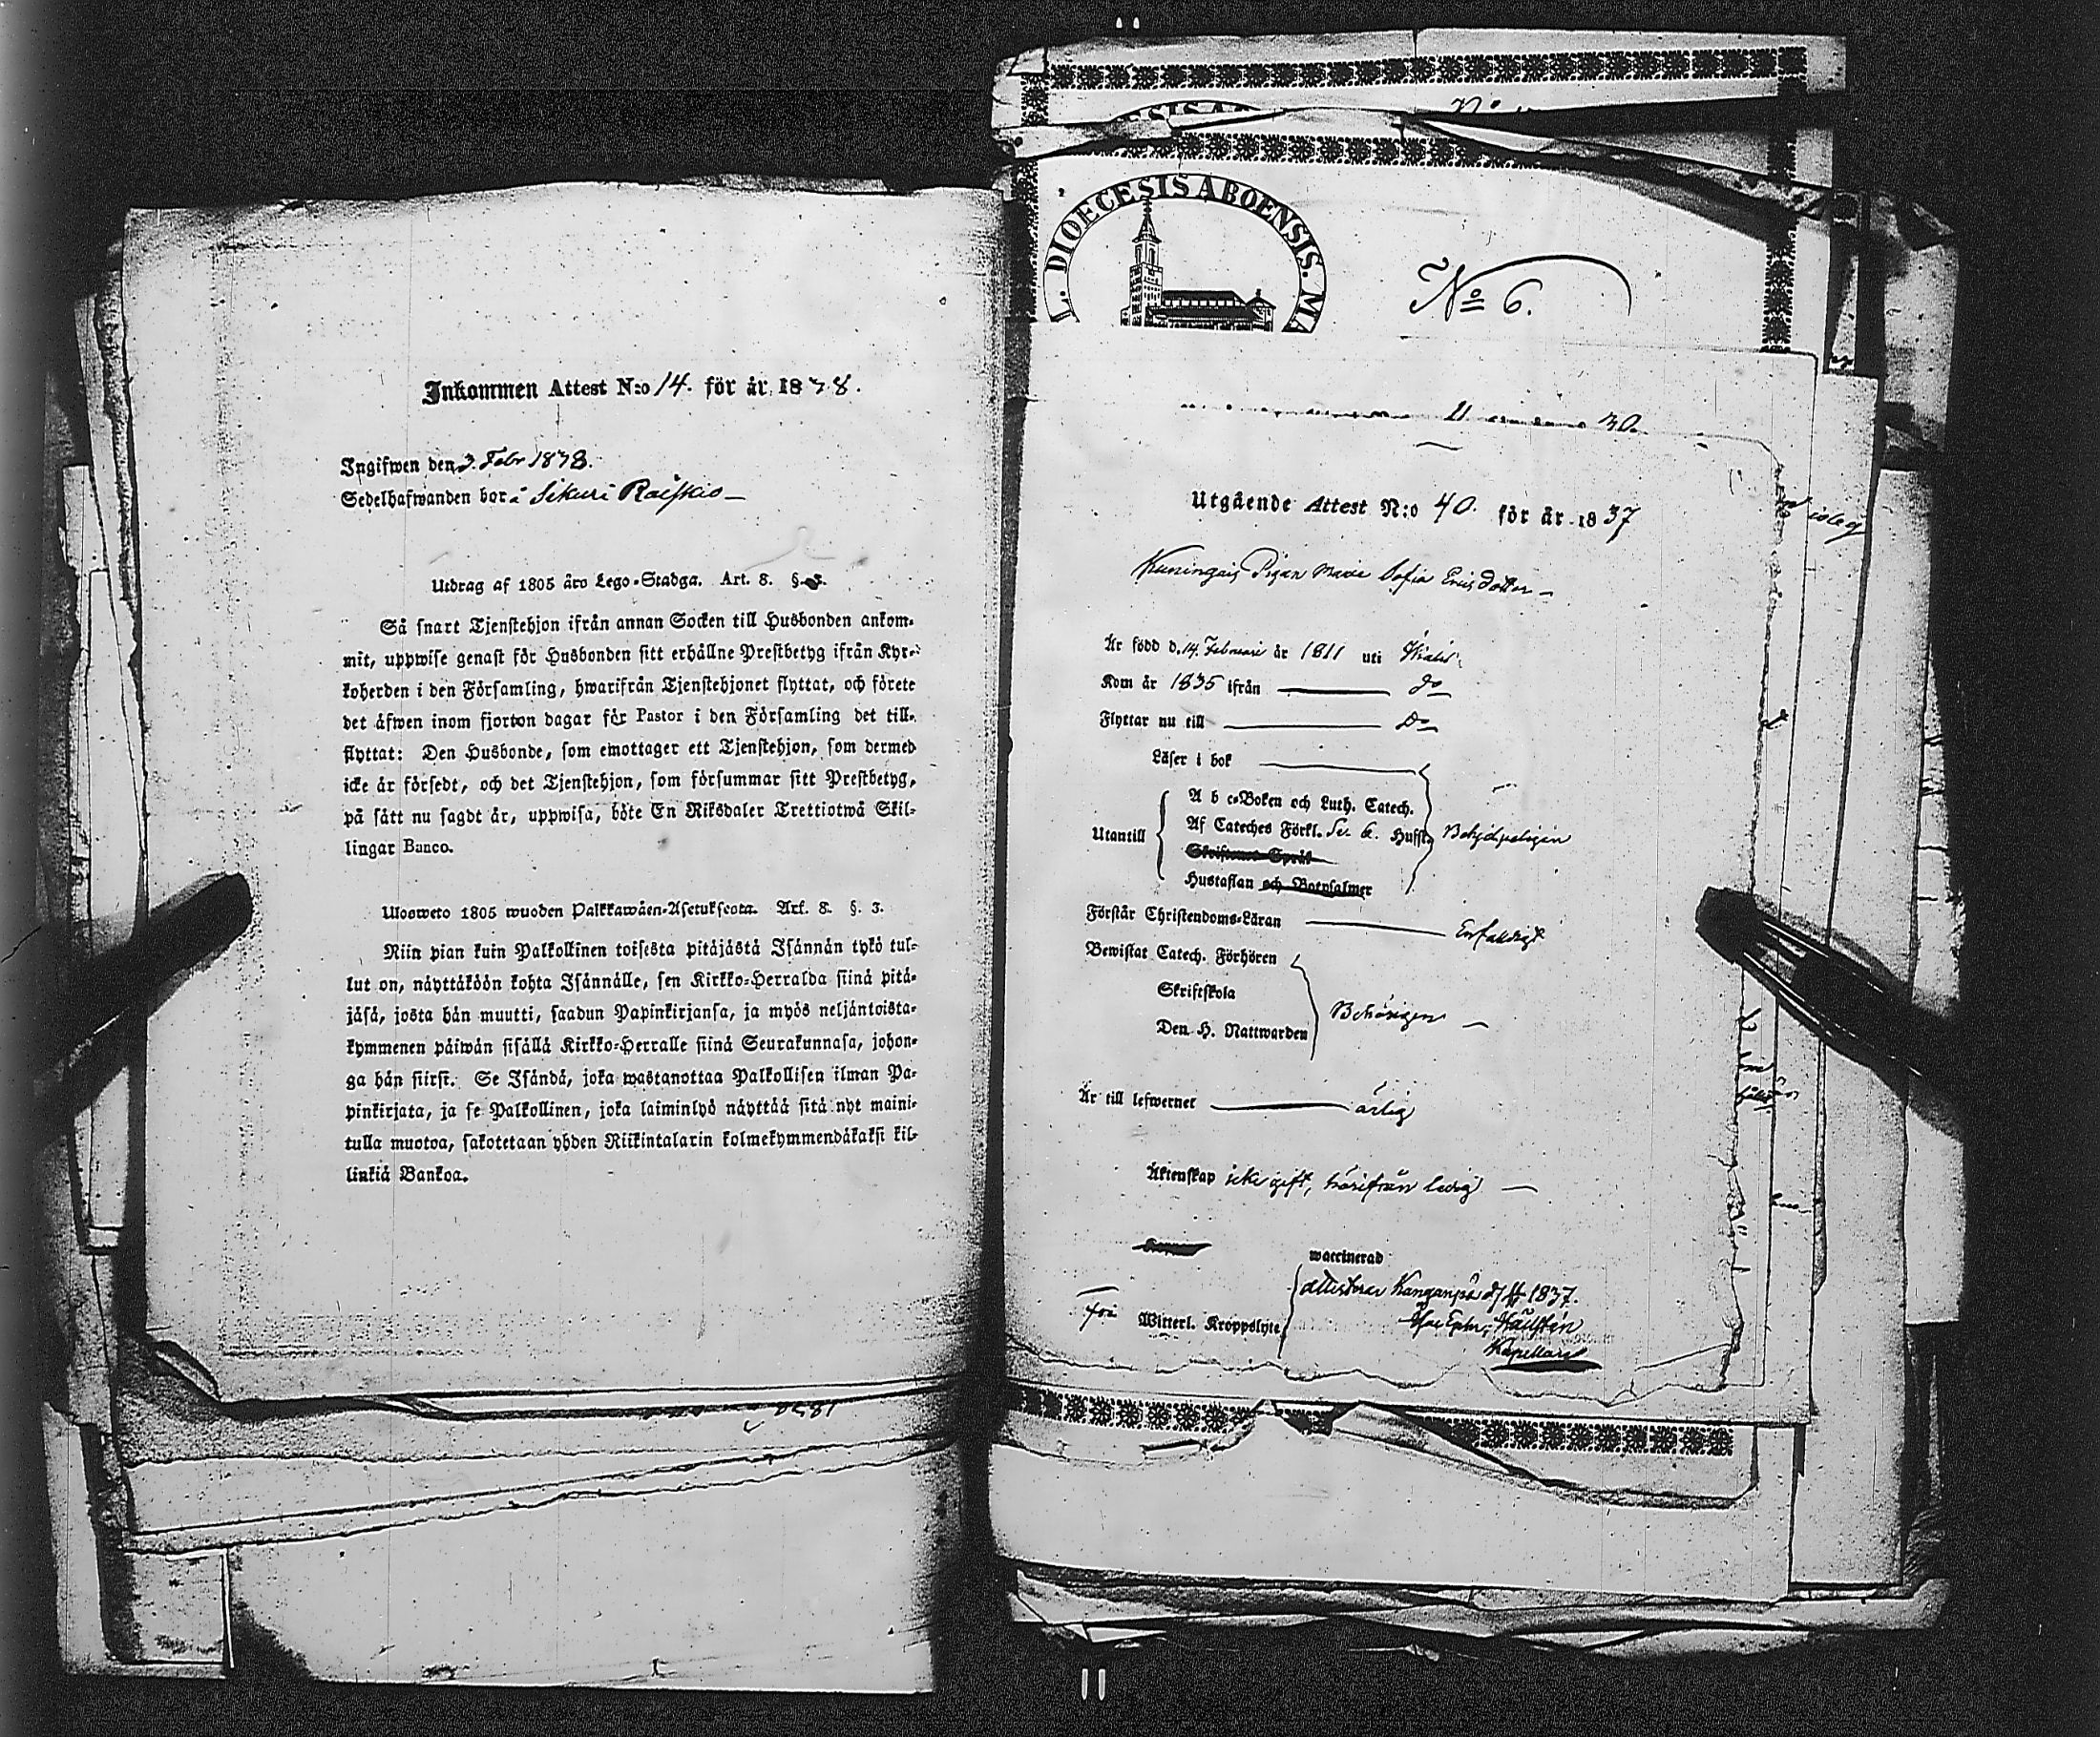 Inkommen Attest N:o 14. för år 1838.
Ingifwen den 3. Febr 1838.
Sedelhafwanden bor i Sikuri Raiskio
Utdrag af 1805 års Lego-Stadga. Art. 8. §. 3.
Så snart Tjenstehjon ifrån annan Socken till Husbonden ankom-
mit, uppwise genast för Husbonden sitt erhållne Prestbetyg ifrån Kyr-
koherden i den Församling, hwarifrån Tjenstehjonet flyttat, och förete
det äfwen inom fjorton dagar för Pastor i den Församling det till-
flyttat: Den Husbonde, som emottager ett Tjenstehjon, som dermed
icke är försedt, och det Tjenstehjon, som försummar sitt Prestbetyg,
på sätt nu sagdt är, uppwisa, böte En Riksdaler Trettiotwå Skil-
lingar Banco.
Ulosweto 1805 wuoden Palkkawäen-Asetuksesta. Art. 8. §. 3.
Niin pian kuin Palkollinen toisesta pitäjästä Isännän tykö tul-
lut on, näyttäköön kohta Isännälle, sen Kirkko-Herralda siinä pitä-
jäsä, josta hän muutti, saadun Papinkirjansa, ja myös neljäntoista-
kymmenen päiwän sisällä Kirkko-Herralle siinä Seurakunnasa, johon-
ga hän siirst. Se Isändä, joka wastanottaa Palkollisen ilman Pa-
pinkirjata, ja se Palkollinen, joka laiminlyö näyttää sitä nyt maini-
tulla muotoa, sakotetaan yhden Riikintalarin kolmekymmendäkaksi kil-
linkiä Bankoa.
L. DIOECESIS ABOENSIS. MA
No 6.
11 30.
Utgående Attest N:o 40. för år 1837
Pigan Maria Sofia Ericsdotter
Är född d. 14. Februari år 1811 uti
Kom år 1835 ifrån do
Flyttar nu till Do
Läser i bok
A b c-Boken och Luth. Catech.
Af Cateches Förkl. Hufst.
Utantill
Skriftenes Språk
Hustaflan och Botpsalmer
Förstår Christendoms-Läran Enfaldigt
Bewistat Catech. Förhören
Skriftskola
Behörigen
Den H. Nattwarden
Är till lefwernet ärlig
Äktenskap icke gift, härifrån ledig
waccinerad
attesterar Kanganpää d. 1837.
Witterl. Kroppslyte
Kapellan